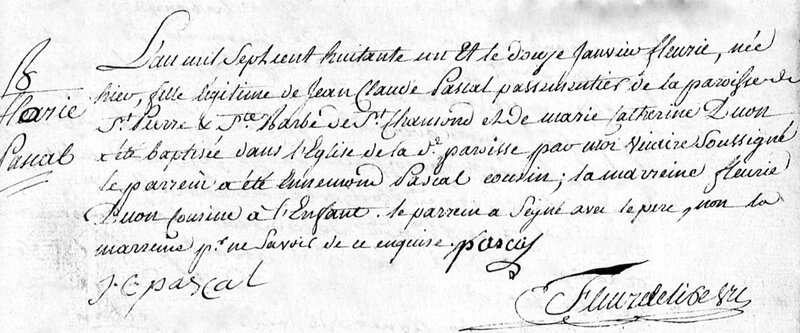 B
flerie
Pascal
L'an mil Sept cent huitante un Et le douze Janvier fleurie, née
hier, fille légitime de Jean Claude Pascal passementier de la paroisse de
St Pierre & Ste Barbe de St Chamond et de marie Catherine Duon
a été baptisée dans l'Eglise de la de paroisse par moi vicaire Soussigné
le parrein a été Ennemond Pascal cousin; la marreine fleurie
Duon Cousine à l'Enfant. le parrein a Signé avec le pere, non la
marreine pr ne Savoir de ce enquise. pascal
J C pascal